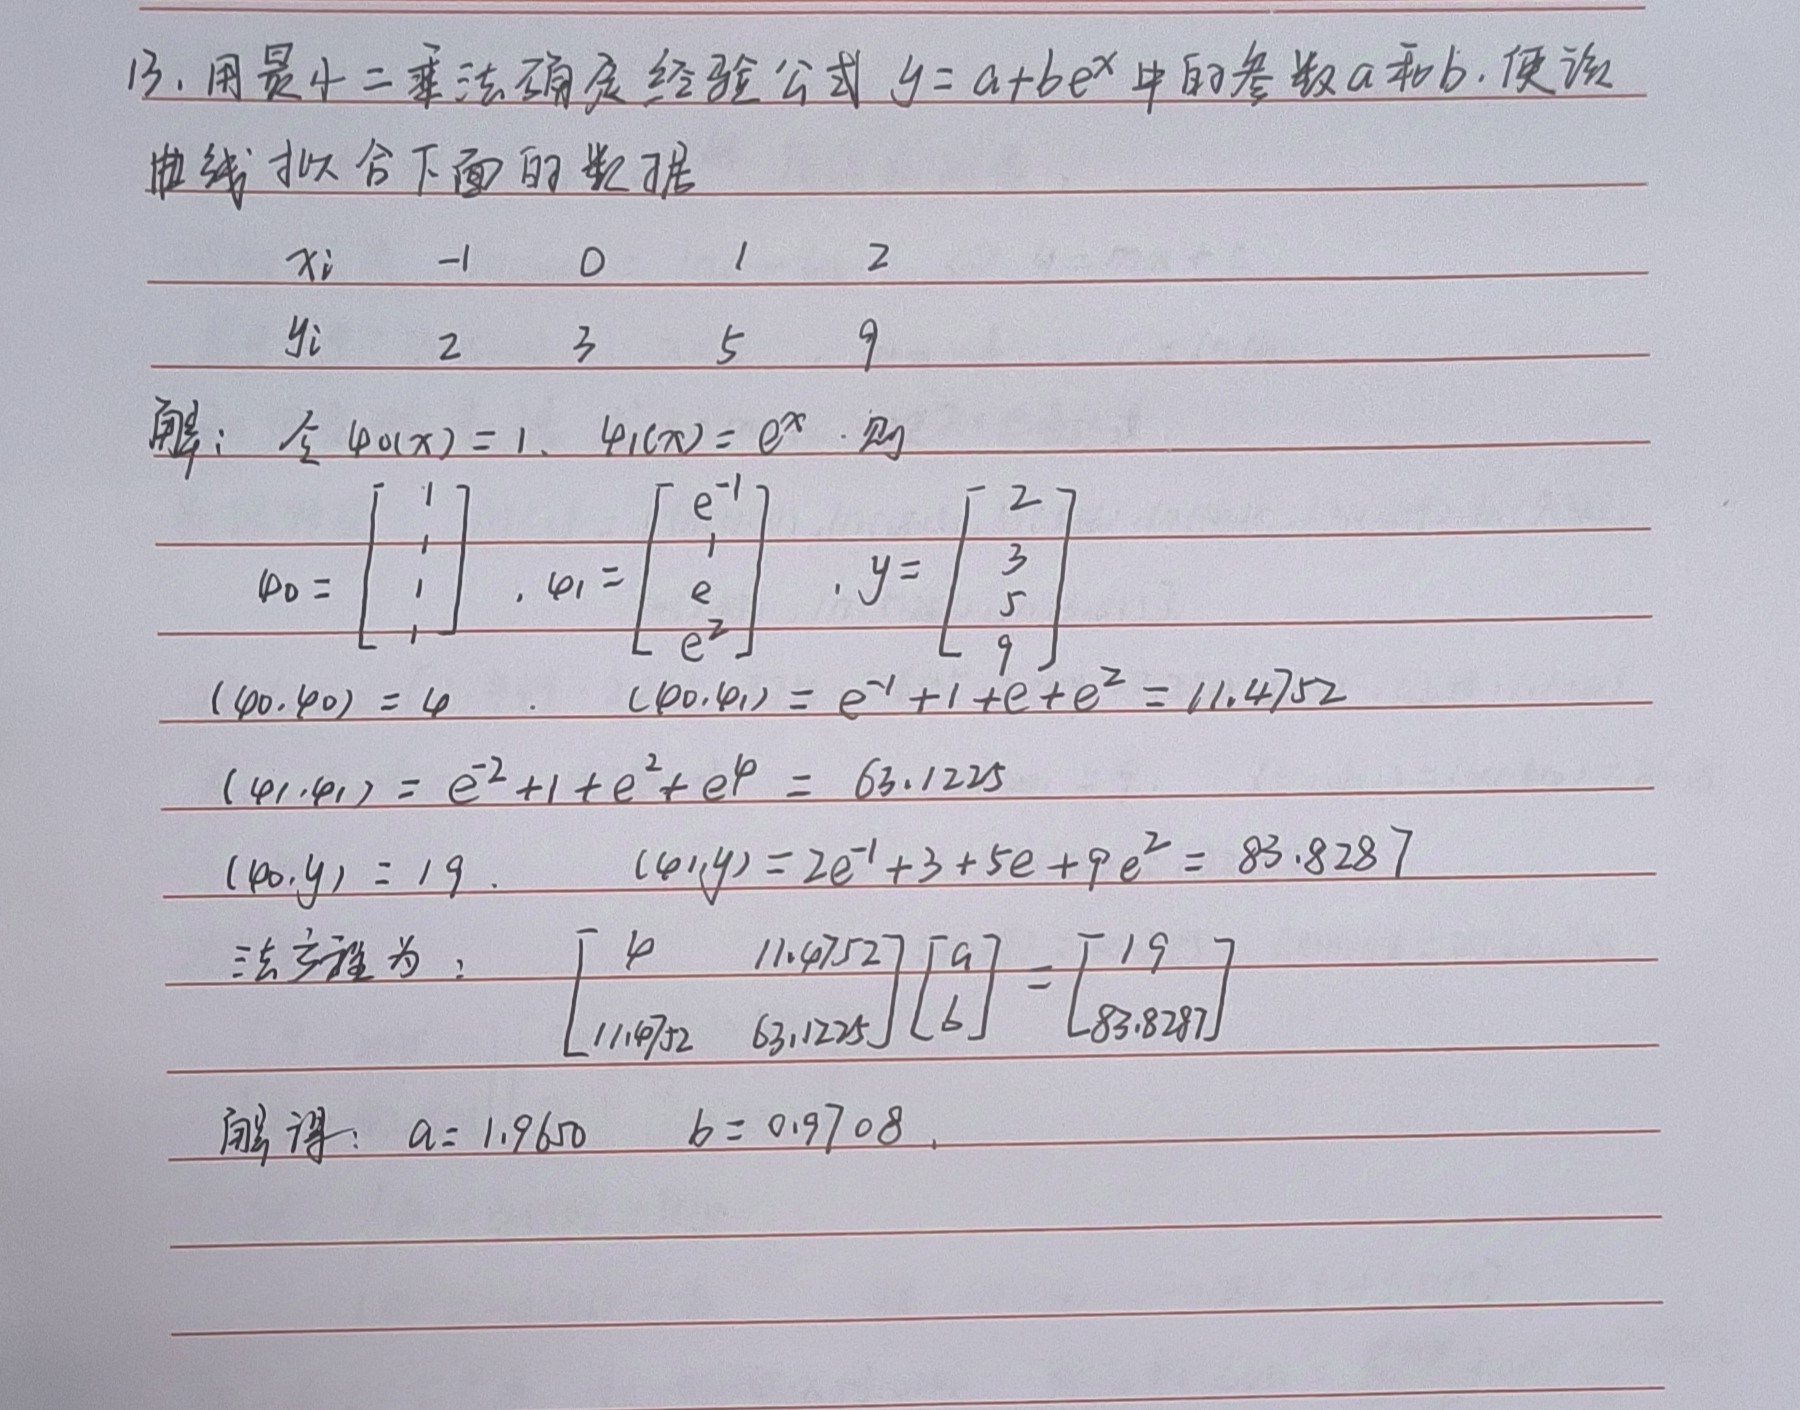 13. 用最小二乘法确定经验公式 y=a+be^x 中的参数a和b. 使该
曲线拟合下面的数据
xi -1 0 1 2
yi 2 3 5 9
解: 令 φ0(x)=1. φ1(x)=e^x. 则
φ0=[1 1 1 1] . φ1=[e^-1 1 e e^2] . y=[2 3 5 9]
(φ0.φ0)=4 . (φ0.φ1)=e^-1+1+e+e^2=11.4752
(φ1.φ1)=e^-2+1+e^2+e^4=63.1225
(φ0.y)=19. (φ1,y)=2e^-1+3+5e+9e^2=83.8287
法方程为: [4 11.4752 11.4752 63.1225][a b]=[19 83.8287]
解得: a=1.9650 b=0.9708.